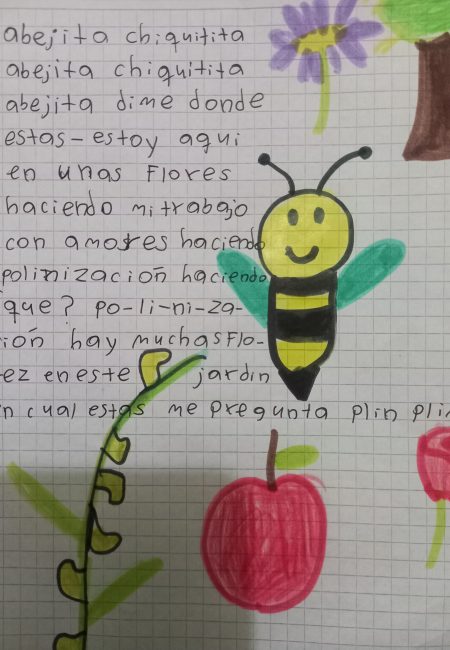 abejita chiquitita
abejita chiquitita
abejita dime donde
estas-estoy aqui
en unas Flores
haciendo mi trabajo
con amores haciendo
polinización haciendo
que? po-li-ni-za-
ión hay muchas Flo-
ez en este jardin
n cual estas me pregunta plin plin